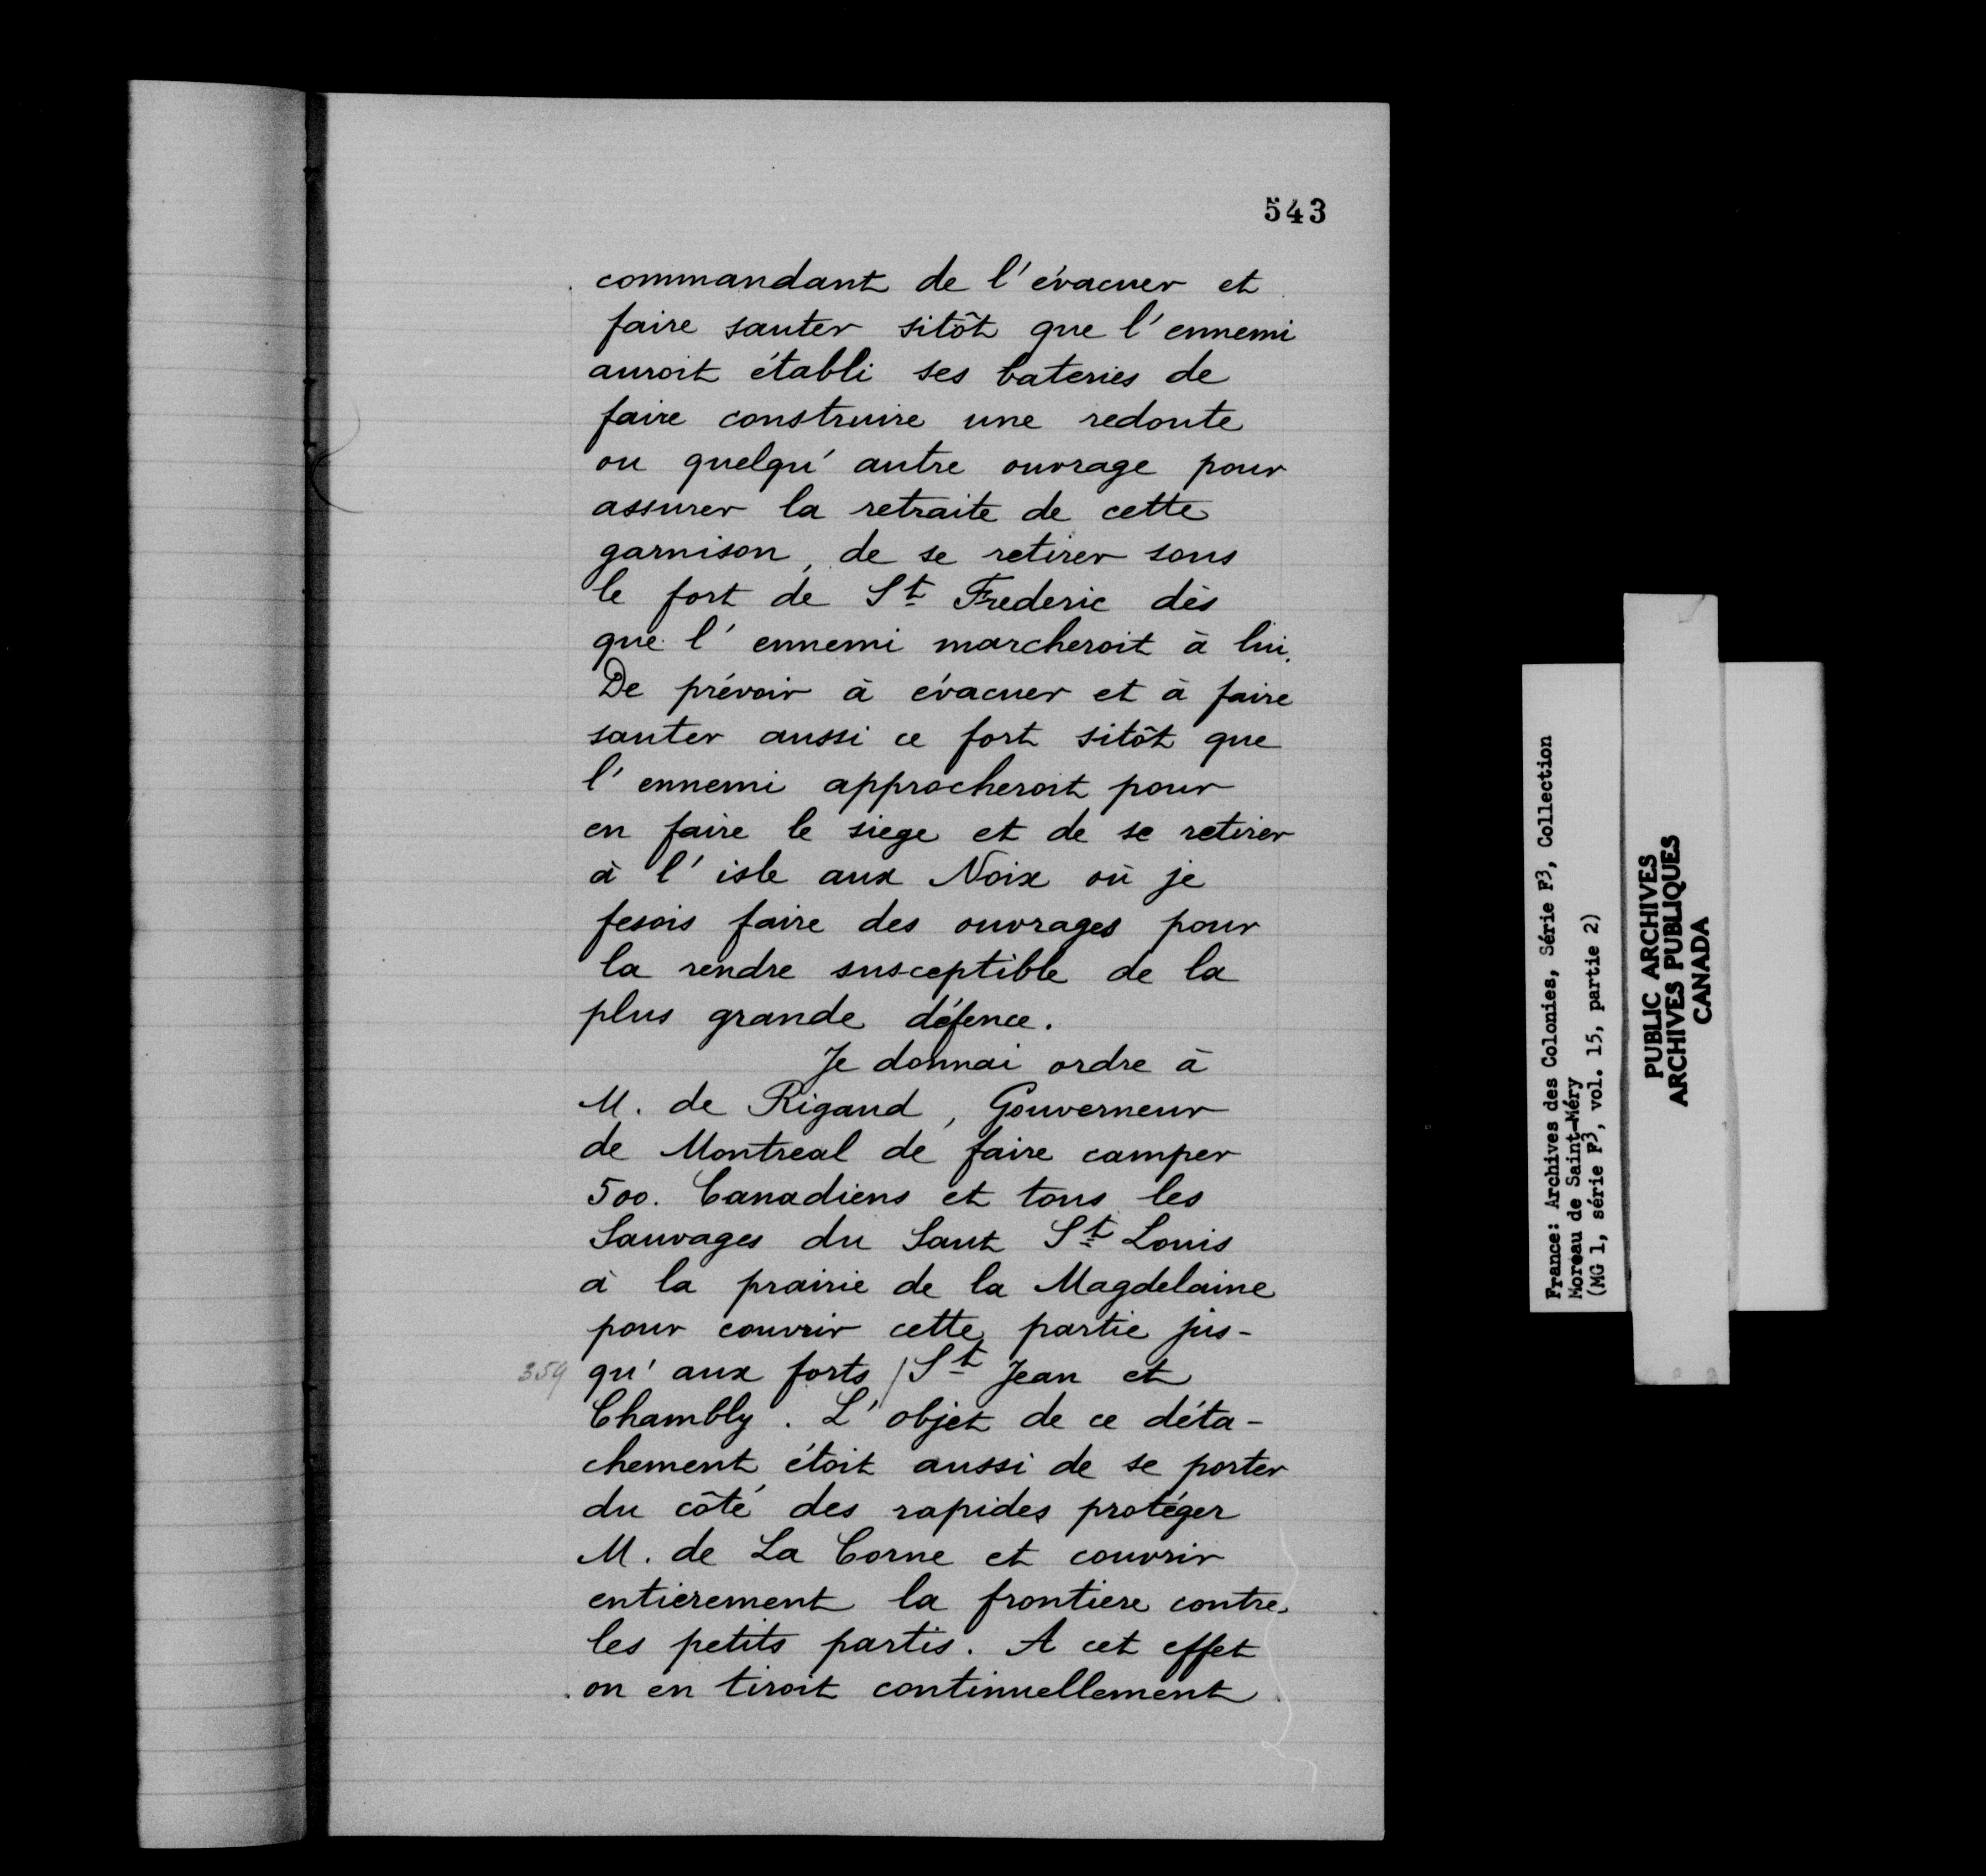 543
commandant de l'évacuer et
faire sauter sitôt que l'ennemi
auroit établi ses bateries de
faire construire une redoute
ou quelqu'autre ouvrage pour
assurer la retraite de cette
garnison, de se retirer sous
le fort de St Frederic dès
que l'ennemi marcheroit à lui.
De prévoir à évacuer et à faire
sauter aussi ce fort sitôt que
l'ennemi approcheroit pour
en faire le siege et de se retirer
à l'isle aux Noix où je
fesois faire des ouvrages pour
la rendre susceptible de la
plus grande défence.
Je donnai ordre à
M. de Rigaud, Gouverneur
de Montreal de faire camper
500. Canadiens et tous les
Sauvages du Saut St Louis
à la prairie de la Magdelaine
pour couvrir cette partie jus-
359 qu'aux forts / St Jean et
Chambly. L'objet de ce déta-
chement étoit aussi de se porter
du côté des rapides protéger
M. de La Corne et couvrir
entièrement la frontiere contre
les petits partis. A cet effet
on en tiroit continuellement
France: Archives des Colonies, Série F3, Collection
Moreau de Saint-Méry
(MG 1, série F3, vol. 15, partie 2)
PUBLIC ARCHIVES
ARCHIVES PUBLIQUES
CANADA